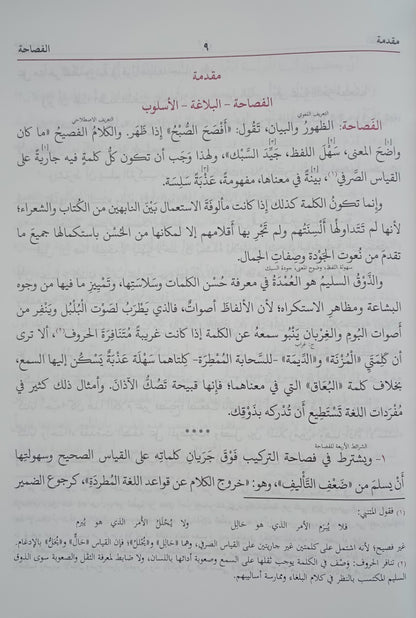 مقدمة ٩ الفصاحة
مقدمة
الفصاحة - البلاغة - الأسلوب
التعريف اللغوي التعريف الاصطلاحي
الفَصَاحة: الظهورُ والبيان، تَقُول: «أَفْصَحَ الصُّبْحُ» إذا ظَهَر. والكلامُ الفَصيحُ «ما كان
واضحَ المعنى، سَهْلَ اللفظ، جَيِّدَ السَّبْك»، ولهذا وَجَب أن تكون كلُّ كلمة فيه جاريةً على
القياس الصَّرفي(١)، بَيِّنةً في معناها، مفهومةً، عَذْبَةً سَلِسَة.
وإنما تكونُ الكلمة كذلك إذا كانت مألوفَةَ الاستعمال بَيْنَ النابهين من الكُتاب والشعراء؛
لأنها لم تَتَداولْها ألْسنَتُهم ولم تَجْرِ بها أقلامهم إلا لمكانها من الحُسْن باستكمالها جميعَ ما
تقدمَ من نُعوت الجَوْدة وصِفاتِ الجمال.
سهولة اللفظ، وضوح المعنى، جودة السبك
والذَّوْقُ السليم هو العُمْدَةُ في معرفة حُسْن الكلمات وسَلاسَتِها، وتَمْييزِ ما فيها من وجوه
البشاعة ومظاهرِ الاستكراه؛ لأنَّ الألفاظَ أصواتٌ، فالذي يَطْرَبُ لصَوْت البُلْبُل ويَنْفِر من
أصوات البُوم والغِرْبان يَنْبُو سمعُه عن الكلمة إذا كانت غريبةً مُتَنَافِرَةَ الحروف(٢)، ألا ترى
أن كلمتَي «الْمُزْنَة» و«الدِّيمَة» -للسحابة المُمْطِرة- كلتاهما سَهْلَة عَذْبَةٌ يَسْكُن إليها السمع،
بخلاف كلمة «البُعَاق» التي في معناهما؛ فإنها قبيحة تَصُكُّ الآذانَ. وأمثال ذلك كثير في
مُفْرَدات اللغة تَسْتطيع أن تُدْركه بذَوْقِك.
****
الشرائط الأربعة للفصاحة
١- ويشترط في فصاحة التركيب فَوْقَ جَرَيانِ كلماتِه على القياس الصحيح وسهولتِها
أنْ يسلم من «ضَعْفِ التَّأليف»، وهو: «خروج الكلام عن قواعد اللغة المُطرَدَة»، كرجوع الضمير
(١) فقول المتنبي:
فلا يُبرَم الأمر الذي هو حَالِل ولا يُحْلَلُ الأمر الذي هو يُبرِم
غير فصيح؛ لأنه اشتمل على كلمتين غير جاريتين على القياس الصرفي، وهما «حَالِل» و«يُحْلَلُ»؛ فإن القياس «حَالٌّ» و«يُحَلُّ» بالإدغام.
(٢) تنافر الحروف: وَصْف في الكلمة يوجب ثقلها على السمع وصعوبة أدائها باللسان، ولا ضابط لمعرفة الثقل والصعوبة سوى الذوق
السليم المكتسب بالنظر في كلام البلغاء وممارسة أساليبهم.